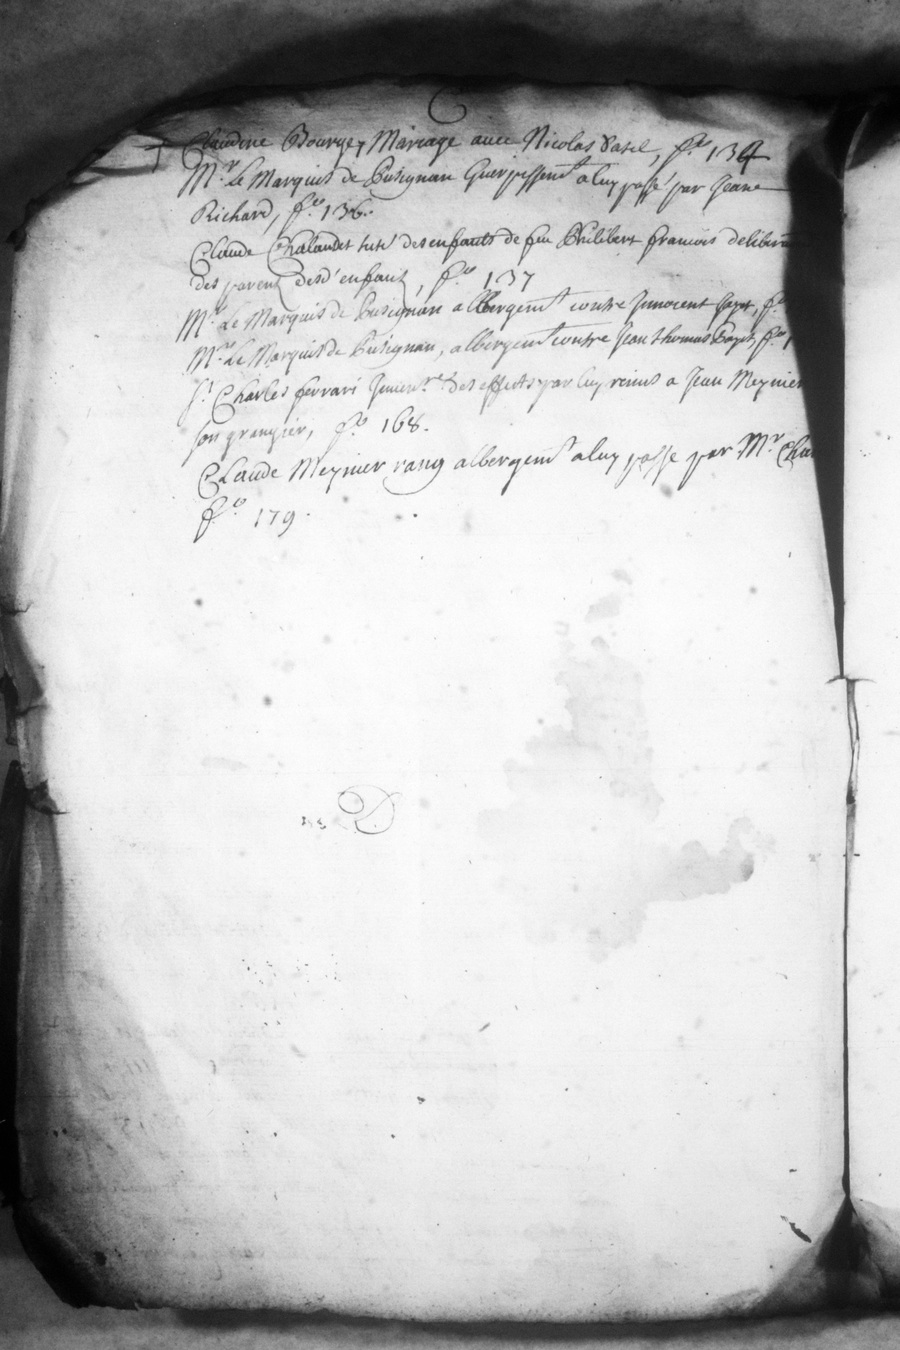 C
Claudine Bourgey Mariage avec Nicolas, f.o 134
M.r Le Marquis de Pusignan Guerpissem.t a luy passé par Jeane
Richard, f.o 136.
Claude Chalandet tut.r des enfants de feu Philibert francois
des parents desd' enfants, f.o 137
M.r Le Marquis de Pusignan albergem.t contre Innocent f.o
M.r Le Marquis de Pusignan, albergem.t contre Jean Thomas f.o
S.r Charles ferrari des effects par luy remis a Jean Meynier
son grangier, f.o 168.
Claude Meynier albergem.t a luy passe par M.r
f.o 179.